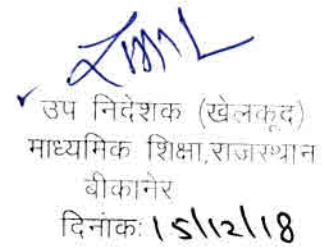 उप निदेशक (खेलकूद)
माध्यमिक शिक्षा,राजस्थान
बीकानेर
दिनांक: 15/12/18